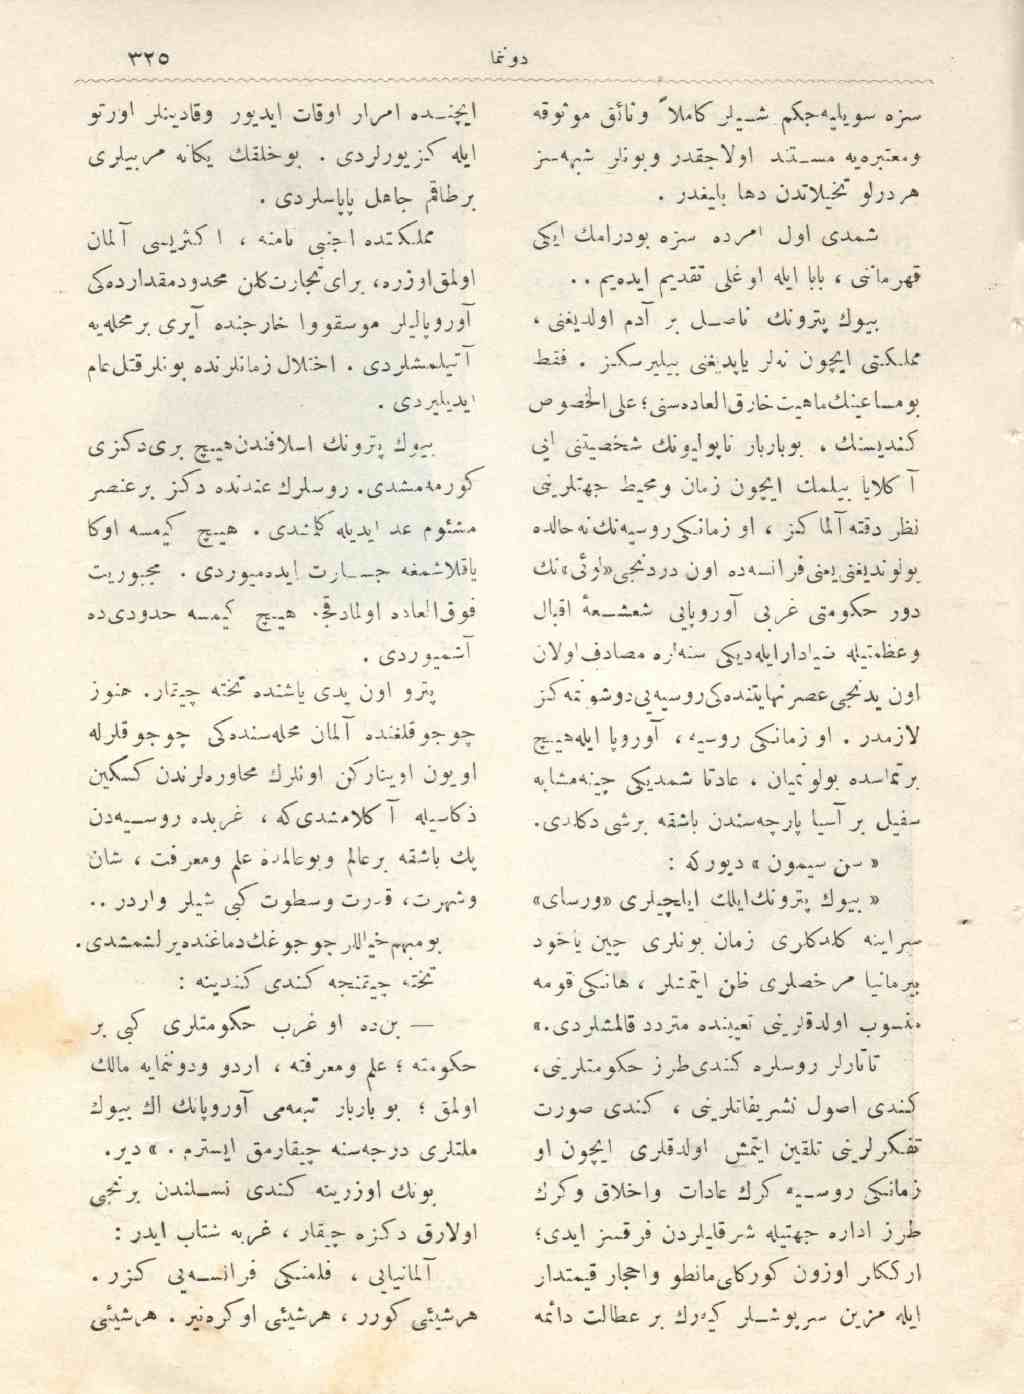 دونما
٣٢٥
سزه سویلیه‌جکم شیلر کاملاً وثائق موثوقه
ومعتبره‌یه مستند اولاجقدر وبونلر شبهه‌سز
هر درلو تخیلاتدن دها بلیغدر .
شمدی اول امرده سزه بودرامك ایکی
قهرماننی ، بابا ایله اوغلی تقدیم ایده‌یم . .
بیوك پترونك ناصل بر آدم اولدیغنی ،
مملکتی ایچون نه‌لر یاپدیغنی بیلیرسکز . فقط
بومساعینك ماهیت خارق‌العاده‌سنی ؛ علی الخصوص
کندیسنك ، بوباربار ناپولیونك شخصیتنی ایی
آکلایا بیلمك ایچون زمان ومحیط جهتلرینی
نظر دقته آلماکز ، او زمانکی روسیه‌نك نه حالده
بولوندیغنی یعنی فرانسه‌ده اون دردنجی «لوئی»نك
دور حکومتی غربی آوروپایی شعشعۀ اقبال
وعظمتیله ضیادار ایله‌دیکی سنه‌لره مصادف اولان
اون یدنجی عصر نهایتنده‌کی روسیه‌یی دوشونمه‌کز
لازمدر . او زمانکی روسیه ، آوروپا ایله هیچ
بر تماسده بولونمیان ، عادتا شمدیکی چینه مشابه
سفیل بر آسیا پارچه‌سندن باشقه برشی دکلدی.
« سن سیمون » دیورکه :
« بیوك پترونك ایلك ایلچیلری «ورسای»
سراینه کلدکلری زمان بونلری چین یاخود
بیرمانیا مرخصلری ظن ایتمشلر ، هانکی قومه
منسوب اولدقلرینی تعیینده متردد قالمشلردی.»
تاتارلر روسلره کندی طرز حکومتلرینی،
کندی اصول تشریفاتلرینی ، کندی صورت
تفکرلرینی تلقین ایتمش اولدقلری ایچون او
زمانکی روسیه کرك عادات واخلاق وکرك
طرز اداره جهتیله شرقلیلردن فرقسز ایدی؛
ارککلر اوزون کورکلی مانطو واحجار قیمتدار
ایله مزین سرپوشلر کیه‌رك بر عطالت دائمه
ایچنده امرار اوقات ایدیور وقادینلر اورتو
ایله کزیورلردی . بوخلقك یکانه مربیلری
برطاقم جاهل پاپاسلردی .
مملکتده اجنبی نامنه ، اکثریسی آلمان
اولمق اوزره، برای تجارت کلن محدود مقدارده‌کی
آوروپالیلر موسقووا خارجنده آیری بر محله‌یه
آتیلمشلردی . اختلال زمانلرنده بونلر قتل عام
ایدیلیردی .
بیوك پترونك اسلافندن هیچ بری دکزی
کورمه‌مشدی. روسلرك عندنده دکز بر عنصر
مشئوم عد ایدیله کلمشدی . هیچ کیمسه اوکا
یاقلاشمغه جسارت ایده‌میوردی . مجبوریت
فوق‌العاده اولمادقجه هیچ کیمسه حدودی‌ده
آشمیوردی .
پترو اون یدی یاشنده تخته چیقار. هنوز
چوجوقلغنده آلمان محله‌سنده‌کی چوجوقلرله
اویون اویناركن اونلرك محاوره‌لرندن کسکین
ذکاسیله آکلامشدی‌که ، غربده روسیه‌دن
پك باشقه برعالم وبوعالمده علم ومعرفت ، شان
وشهرت، قدرت وسطوت کبی شیلر واردر . .
بو مبهم خیاللر چوجوغك دماغنده یرلشمشدی.
تخته چیقنجه کندی کندینه :
— بن‌ده او غرب حکومتلری کبی بر
حکومته ؛ علم ومعرفته ، اردو ودونمایه مالك
اولمق ؛ بو باربار تبعه‌می آوروپانك اك بیوك
ملتلری درجه‌سنه چیقارمق ایسترم . » دیر.
بونك اوزرینه کندی نسلندن برنجی
اولارق دکزه چیقار ، غربه شتاب ایدر :
آلمانیایی ، فلمنکی فرانسه‌یی کزر .
هرشیئی کورر ، هرشیئی اوکره‌نیر . هرشیئی